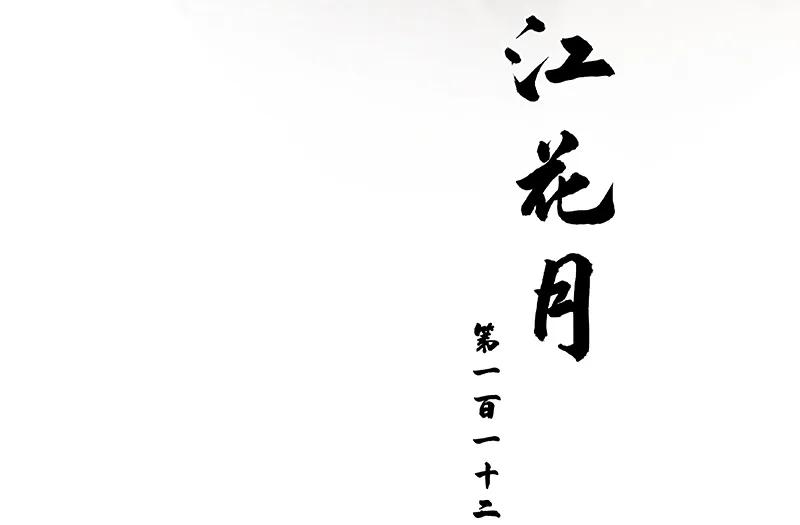 江花月
第一百一十二